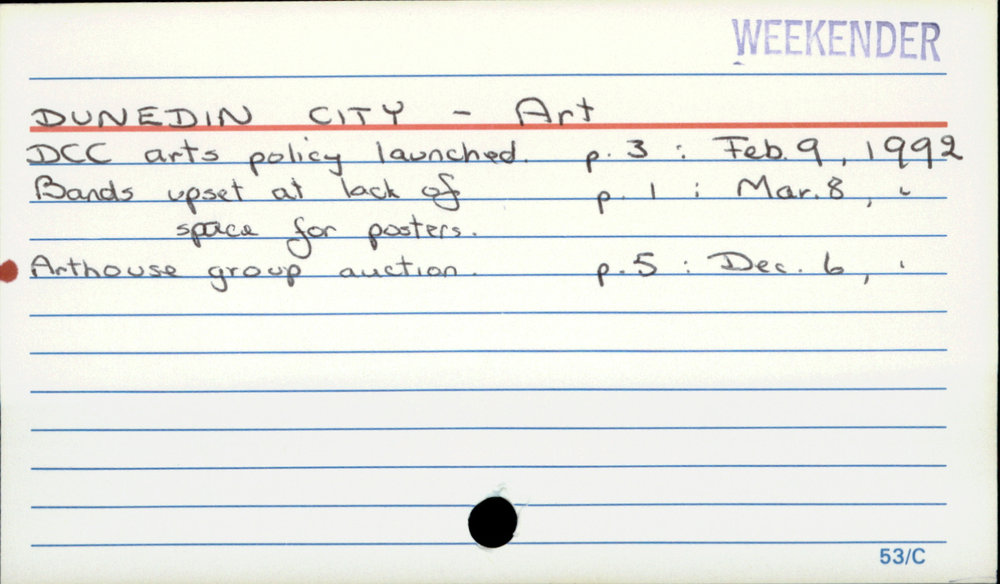 WEEKENDER
DUNEDIN CITY - Art
DCC arts policy launched. p. 3 : Feb. 9, 1992
Bands upset at lack of p. 1 : Mar. 8, "
space for posters.
Arthouse group auction. p. 5 : Dec. 6, "
53/C